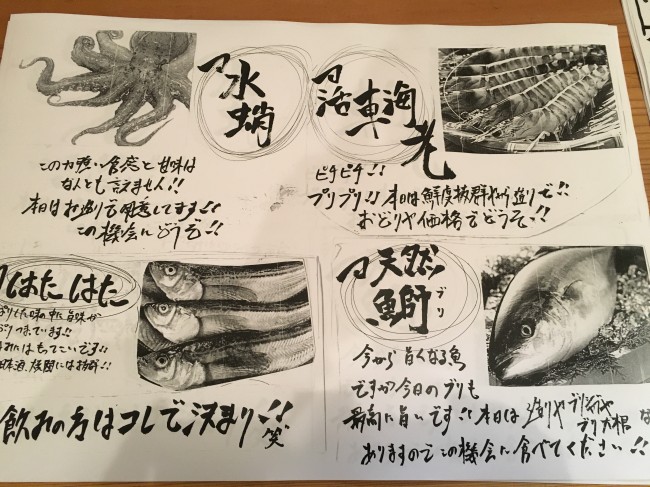 水
蛸
この力強い食感と甘味は
なんとも言えません!!
本日はお造りで用意してます!!
この機会にどうぞ!!
活車海
老
ピチピチ!!
プリプリ!! 本日は鮮度抜群やから造りで!!
おどりや価格でどうぞ!!
はたはた
日本酒、
飲れの方はコレで決まり!!
笑
天然
鰤
ブリ
今から旨くなる魚
ですが今日のブリも
最高に旨いです!! 本日は造りやブリ
ブリ大根な
ありますのでこの機会に食べてください!!